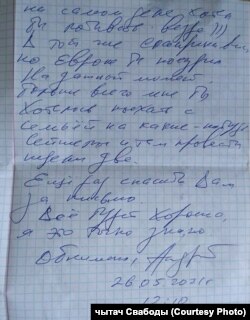 на самом деле, хотя
бы потише везде )))
В той же
но Европе я
На данный момент
больше всего мне бы
хотелось поехать с
семьёй на какие-нибудь
и там провести
недели две.
Ещё раз спасибо Вам
за письмо.
Всё будет хорошо,
я это точно знаю
Обнимаю, Андрей
26.05.2021г
12:10
чытач Свабоды (Courtesy Photo)